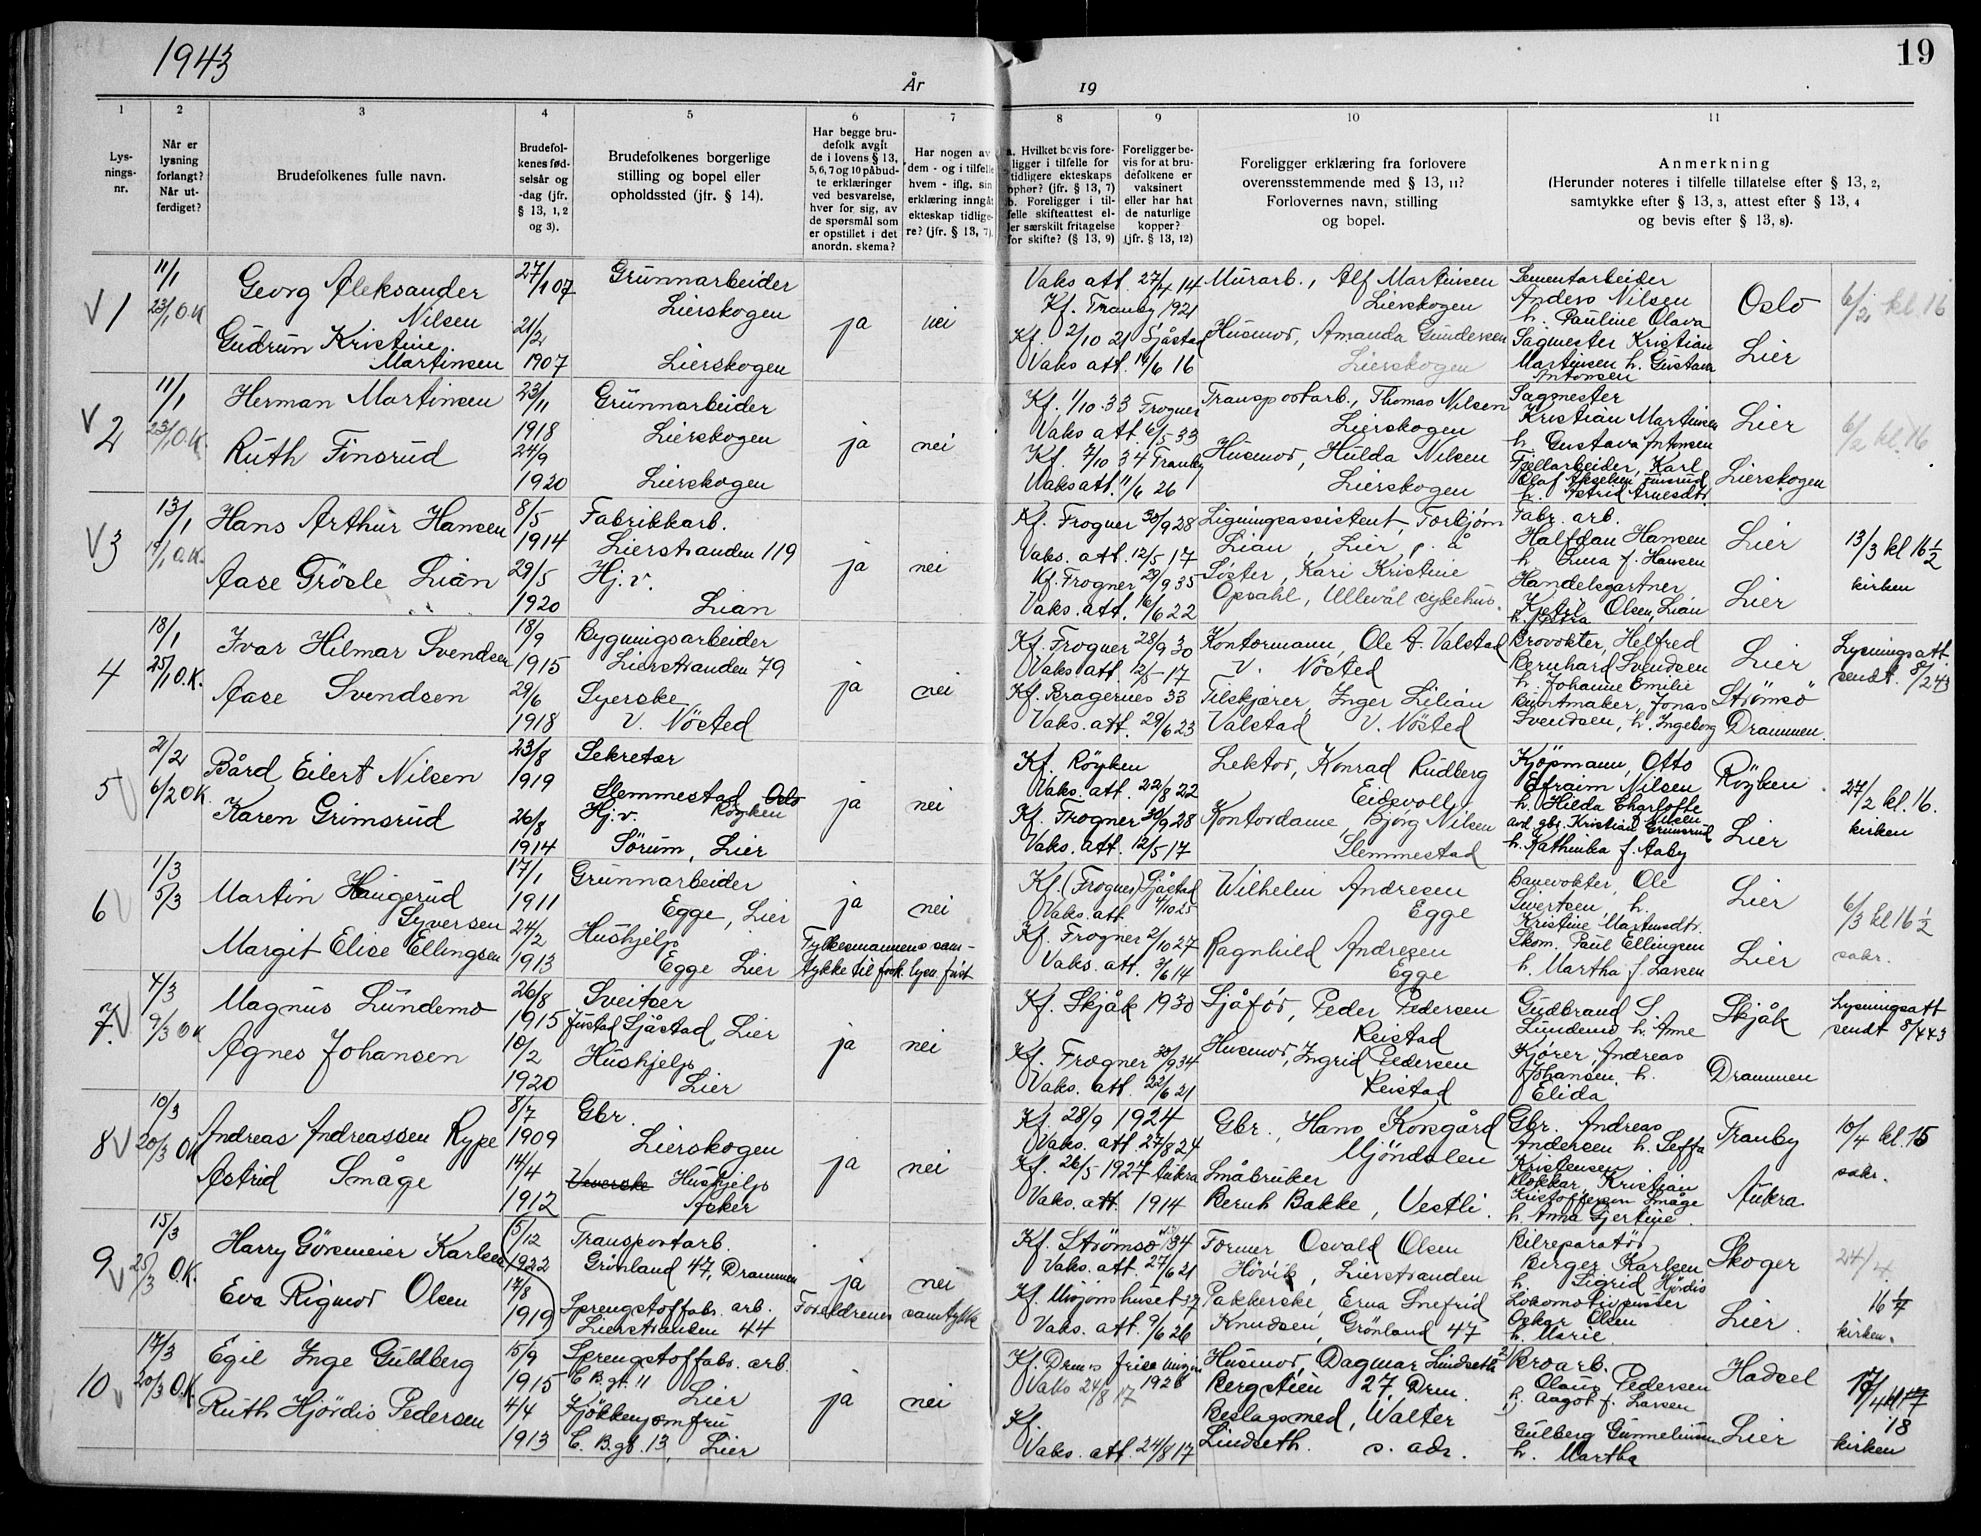 1943
År
19
19
1
2
3
4
5
6
7
8
9
10
11
Lys-
nings-
nr.
Når er
lysning
forlangt?
Når ut-
ferdiget?
Brudefolkenes fulle navn.
Brudefol-
kenes fød-
selsår og
-dag (jfr.
§ 13, 1, 2
og 3).
Brudefolkenes borgerlige
stilling og bopel eller
opholdssted (jfr. § 14).
Har begge bru-
defolk avgitt
de i lovens § 13,
5, 6, 7 og 10 påbud-
te erklæringer
ved besvarelse,
hver for sig, av
de spørsmål som
er opstillet i det
anordn. skema?
Har nogen av
dem - og i tilfelle
hvem - iflg. sin
erklæring inngått
ekteskap tidlige-
re? (jfr. § 13, 7).
a. Hvilket bevis fore-
ligger i tilfelle for
tidligere ekteskaps
ophør? (jfr. § 13, 7)
b. Foreligger i til-
felle skifteattest el-
ler særskilt fritagelse
for skifte? (§ 13, 9)
Foreligger be-
vis for at bru-
defolkene er
vaksinert
eller har hat
de naturlige
kopper?
(jfr. § 13, 12)
Foreligger erklæring fra forlovere
overensstemmende med § 13, 11?
Forlovernes navn, stilling
og bopel.
Anmerkning
(Herunder noteres i tilfelle tillatelse efter § 13, 2,
samtykke efter § 13, 3, attest efter § 13, 4
og bevis efter § 13, 8).
V 1
11/1
23/1 O.K
Georg Aleksander
Nilsen
Gudrun Kristine
Martinsen
27/1 07
21/2
1907
Grunnarbeider
Lierskogen
Lierskogen
ja
nei
Vaks att. 27/4 14
Kf. Tranby 1921
Kf. 2/10 21 Sjåstad
Vaks att. 14/6 16
Murarb., Alf Martinsen
Lierskogen
Husmor, Amanda Gundersen
Lierskogen
Sementarbeider
Anders Nilsen
h. Pauline Olava
Sagmester Kristian
Martinsen h. Gustava
Antonsen
Oslo
Lier
6/2 kl. 16
V 2
11/1
23/1 O.K.
Herman Martinsen
Ruth Finsrud
23/11
1918
24/9
1920
Grunnarbeider
Lierskogen
Lierskogen
ja
nei
Kf. 1/10 33 Frogner
Vaks att. 6/5 33
Kf. 7/10 34 Tranby
Vaks att. 11/6 26
Transportarb., Thomas Nilsen
Lierskogen
Husmor, Hulda Nilsen
Lierskogen
Sagmester
Kristian Martinsen
h. Gustava Antonsen
Fjellarbeider, Karl
Olaf Akselsen Finsrud
h. Astrid Arnesdtr.
Lier
Lierskogen
6/2 kl. 16
V 3
13/1
19/1 O.K.
Hans Arthur Hansen
Aase Trösle Lian
8/5
1914
29/5
1920
Fabrikkarb.
Lierstranden 119
Hj. v.
Lian
ja
nei
Kf. Frogner 30/9 28
Vaks. att. 12/5 17
Kf. Frogner 29/9 35
Vaks. att. 16/6 22
Ligningsassistent, Torbjørn
Lian, Lier, p. å
Söster, Kari Kristine
Opsahl, Ullevål sykehus.
Fabr. arb.
Halfdan Hansen
h. Lina f. Hansen
Handelsgartner
Kjetil Olsen, Lian
h. Petra
Lier
Lier
13/3 kl 16 1/2
kirken
4
18/1
25/1 O.K.
Ivar Hilmar Svendsen
Aase Svendsen
18/9
1915
29/6
1918
Bygningsarbeider
Lierstranden 79
Syerske
V. Nösted
ja
nei
Kf. Frogner 28/9 30
Vaks att. 12/5-17
Kf. Bragernes 33
Vaks. att. 29/6 23
Kontormann, Ole A. Valstad
V. Nösted
Tilskjærer, Inger Lilian
Valstad V. Nösted
Brovokter, Helfred
Bernhard Svendsen
h. Johanne Emilie
Buntmaker, Jonas
Svendsen, h. Ingeborg
Lier
Strömsö
Drammen.
Lysningsatt.
sendt. 8/2 43
5
2/2
6/2 O.K.
Bård Eilert Nilsen
Karen Grimsrud
23/8
1919
26/8
1914
Sekretær
Slemmestad Oslo
Röyken
Hj. v.
Sörum, Lier
ja
nei
Kf. Röyken
Vaks. att. 22/8 22
Kf. Frogner 30/9 28
Vaks. att. 12/5 17
Lektor, Konrad Rudberg
Eidsvoll
Kontordame Bjorg Nilsen
Slemmestad
Kjöpmann, Otto
Efraim Nilsen
h. Hilda Charlotte
Nilsen
avd gbr. Kristian Grimsrud
h. Kathinka f. Aaby
Röyken
Lier
27/2 kl. 16.
kirken
6
1/3
5/3
Martin Haugerud
Syversen
Margit Elise Ellingsen
17/1
1911
24/2
1913
Grunnarbeider
Egge, Lier
Hushjelp
Egge Lier
ja
nei
Fylkesmannens sam-
tykke til fork. lysn. frist
Kf. (Frogner) Sjåstad
4/10 25
Vaks. att.
Kf. Frogner 2/10 27
Vaks. att. 3/6 14
Wilhelm Andresen
Egge
Ragnhild Andresen
Egge
Banevokter, Ole
Sivertsen, h.
Kristine Martinsdtr.
Skom. Paul Ellingsen
h. Martha f. Larsen
Lier
Lier
6/3 kl 16 1/2
sakr.
7. V
4/3
9/3 OK
Magnus Lundemo
Agnes Johansen
26/8
1915
10/2
1920
Sveitser
Justad Sjåstad, Lier
Hushjelp
Lier
ja
nei
Kf. Skjåk 1930
Kf. Frogner 30/9 34
Vaks. att. 22/6 21
Sjåför, Peder Pedersen
Reistad
Husmor, Ingrid Pedersen
Reistad
Gudbrand S.
Lundemo h. Anne
Kjörer, Andreas
Johansen, h.
Elida
Skjåk
Drammen
Lysningsatt
sendt 8/4 43
8 V
10/3
20/3 OK
Andreas Andreassen Rype
Astrid Småge
8/7
1909
14/4
1912
Gbr.
Lierskogen
Veverske Hushjelp
Asker
ja
nei
Kf. 28/9 1924
Vaks. att. 27/8 24
Kf. 26/5 1927 Aukra
Vaks. att. 1914
Gbr., Hans Korsgård
Mjöndalen
Småbruker
Bernh Bakke, Vestli.
Gbr. Andreas
Andersen h. Seffa
Kristensen
Klokkar, Kristian
Kristoffersen Småge
h. Anna Gjertine
Tranby
Aukra
10/4 kl. 15
sakr.
9 V
15/3
25/3 O.K.
Harry Görsmeier Karlsen
Eva Rigmor Olsen
5/12
1922
17/8
1919
Transportarb.
Grönland 47, Drammen
Sprengstoffabr. arb.
Lierstranden 44
ja
nei
Foreldrenes samtykke
Kf. Strömsø 34
Vaks. att. 27/6 21
Kf. Misjonshuset 37
Vaks. att. 9/6 26
Former Osvald Olsen
Hövik, Lierstranden
Pakkerske, Erna Snefrid
Knudsen, Grönland 47
Bilreparatör
Birger Karlsen
h. Sigrid Hjördis
Lokomotivpusser
Oskar Olsen
h. Marie
Skoger
Lier.
24/4.
kirken.
10 V
17/3
20/3 O.K.
Egil Inge Guldberg
Ruth Hjördis Pedersen
15/9
1915
4/4
1913
Sprengstoffabr. arb.
C. B. gt. 11 Lier
Kjökkenjomfru
C. B. gt. 13, Lier
ja
nei
Kf. Drms frie
1928
Vaks 24/8 17
Kf.
Vaks. att. 24/8 17
Husmor, Dagmar Lindseth
Bergstien 27 Drm.
Beslagsmed, Walter
Lindseth. s. adr.
Broarb.
Olaus Pedersen
h. Aagot f. Larsen
Gulberg Gunneliussen
h. Martha
Hadsel
Lier
17/4 kl 17
18
kirken